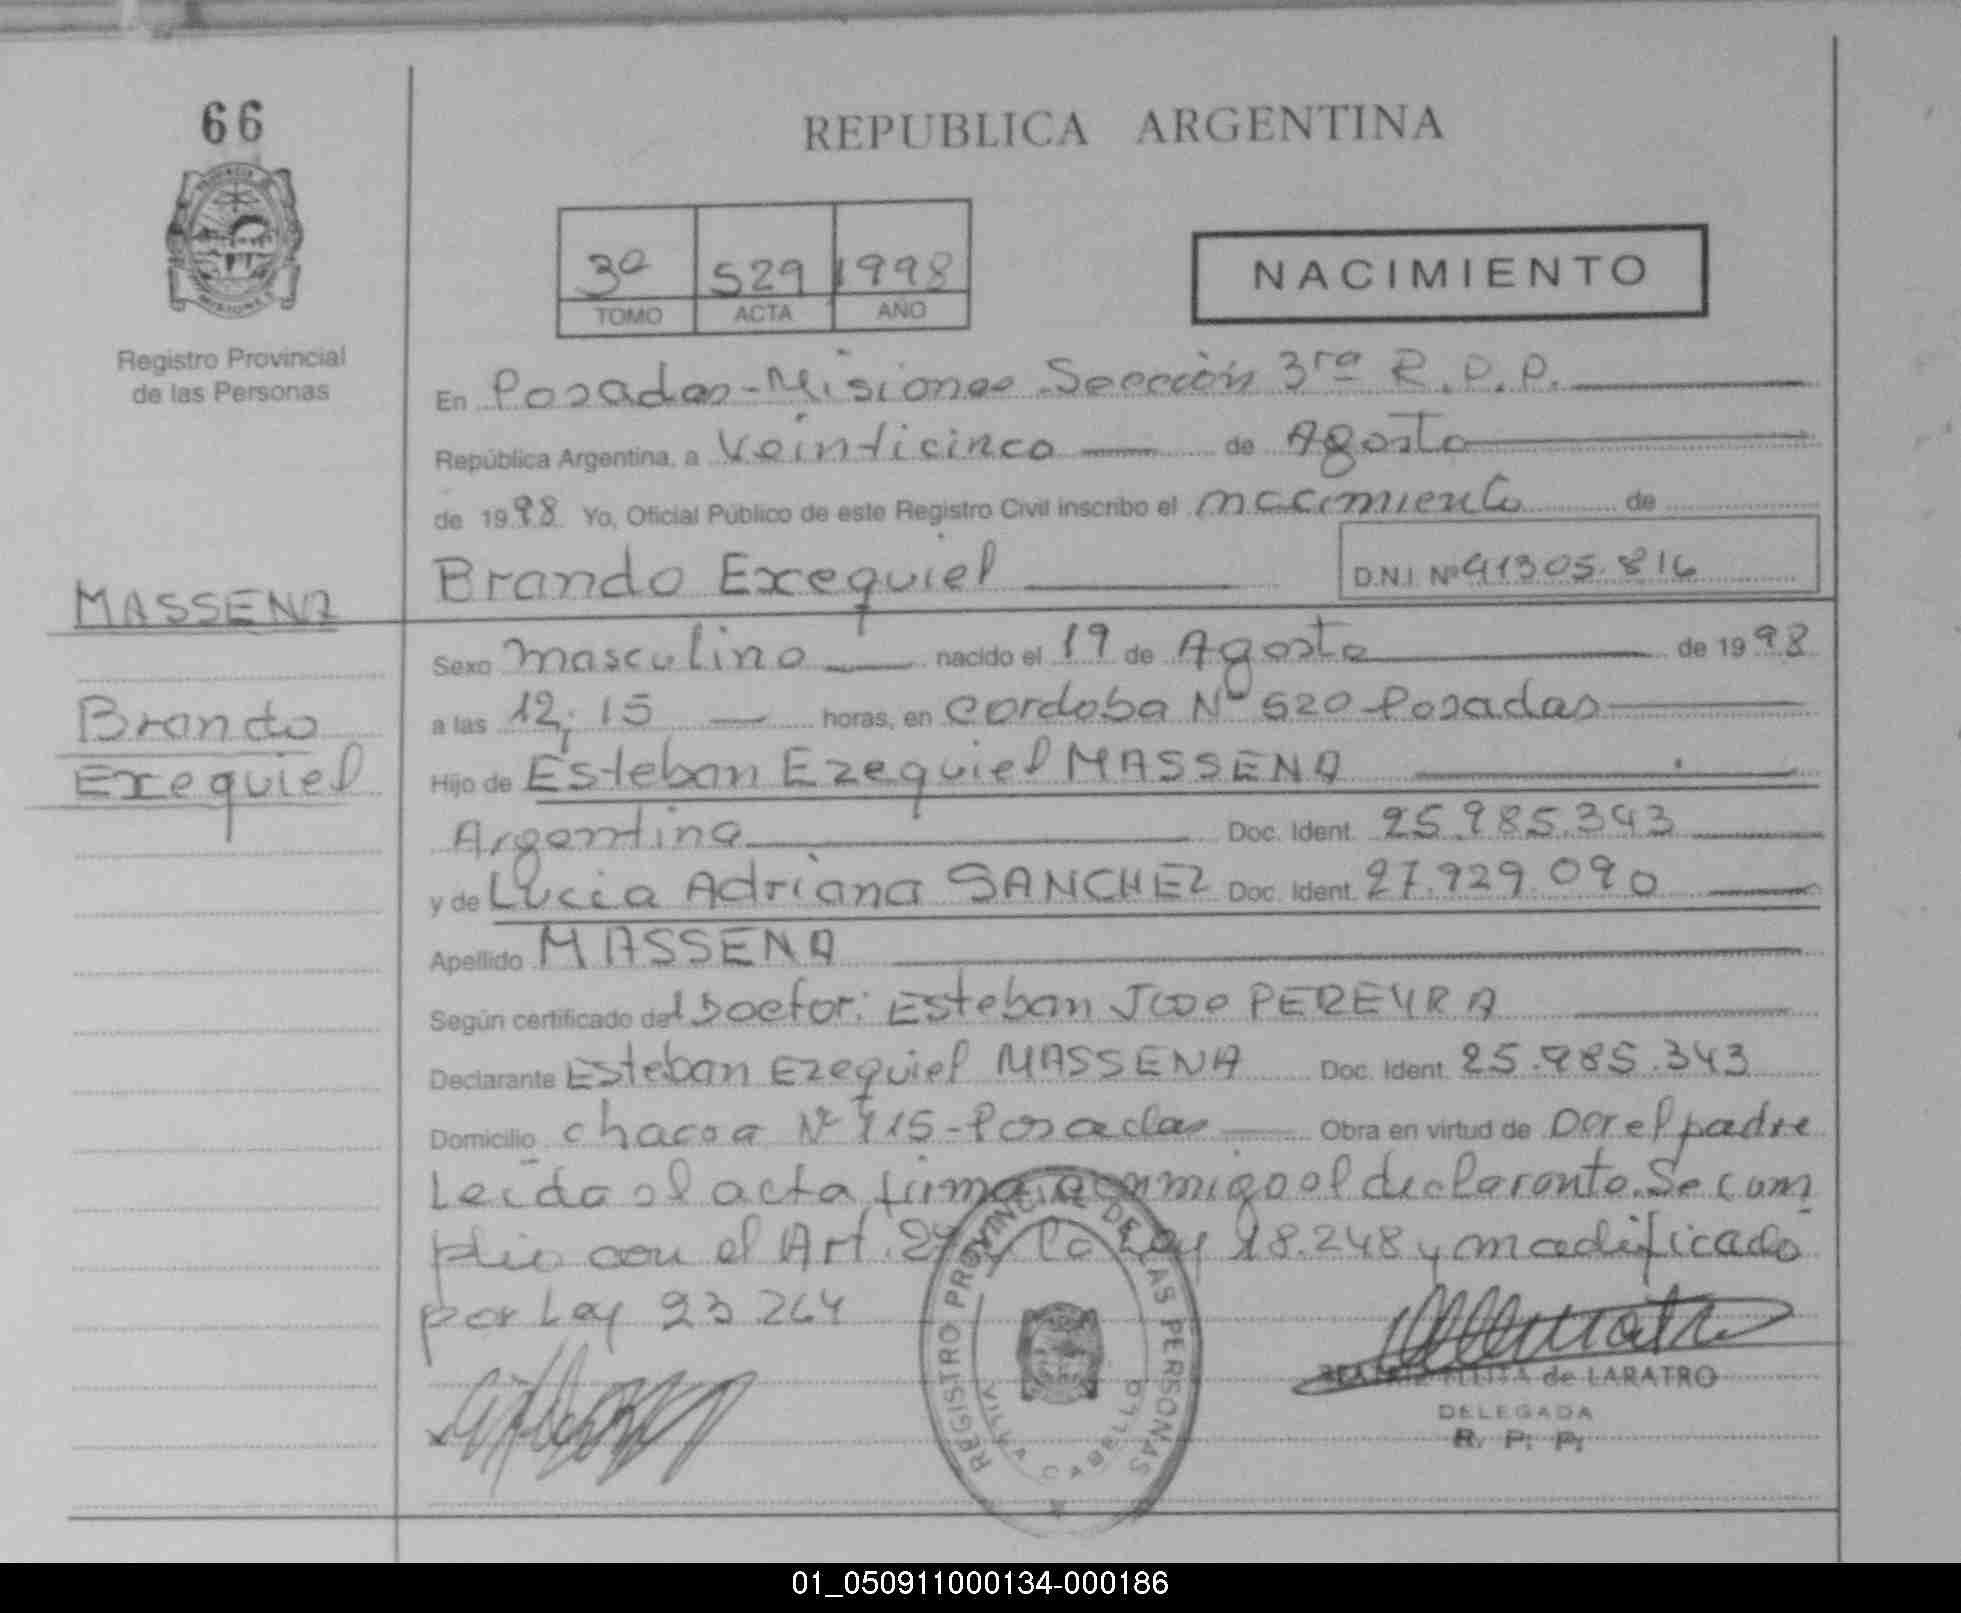 66
Registro Provincial
de las Personas
MASSENA
Brando
Exequiel
REPUBLICA ARGENTINA
3ª 529 1998
TOMO ACTA AÑO
NACIMIENTO
En Posadas-Misiones Sección 3ra R.P.P.
República Argentina, a Veinticinco de Agosto
de 1998 Yo, Oficial Público de este Registro Civil inscribo el nacimiento de
Brando Exequiel D.N.I. Nº 41305.816
Sexo masculino nacido el 19 de Agosto de 1998
a las 12,15 horas, en Cordoba Nº 520 Posadas
Hijo de Esteban Ezequiel MASSENA
Argentina Doc. Ident. 25.985.343
y de Lucia Adriana SANCHEZ Doc. Ident. 27.929.090
Apellido MASSENA
Según certificado del Doctor: Esteban Jose PEREYRA
Declarante Esteban Ezequiel MASSENA Doc. Ident. 25.985.343
Domicilio chacra Nº 115-Posadas Obra en virtud de Der el padre
Leida el acta firma conmigo el declarante. Se cum
plio con el Art. la Ley 18.248 y modificado
por Ley 23.264
REGISTRO PROVINCIAL DE LAS PERSONAS
VILLA CABELLO
de LARATRO
DELEGADA
R. P. P.
01_050911000134-000186